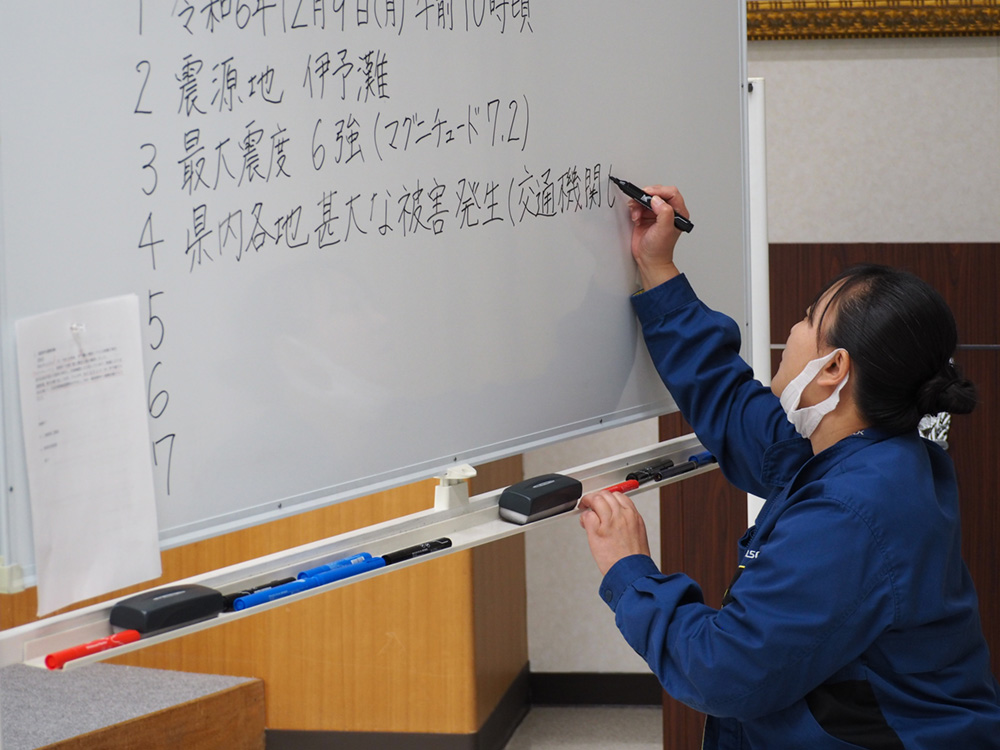 1 令和6年12月9日(月)午前10時頃
2 震源地 伊予灘
3 最大震度 6強(マグニチュード7.2)
4 県内各地甚大な被害発生(交通機関し
5
6
7